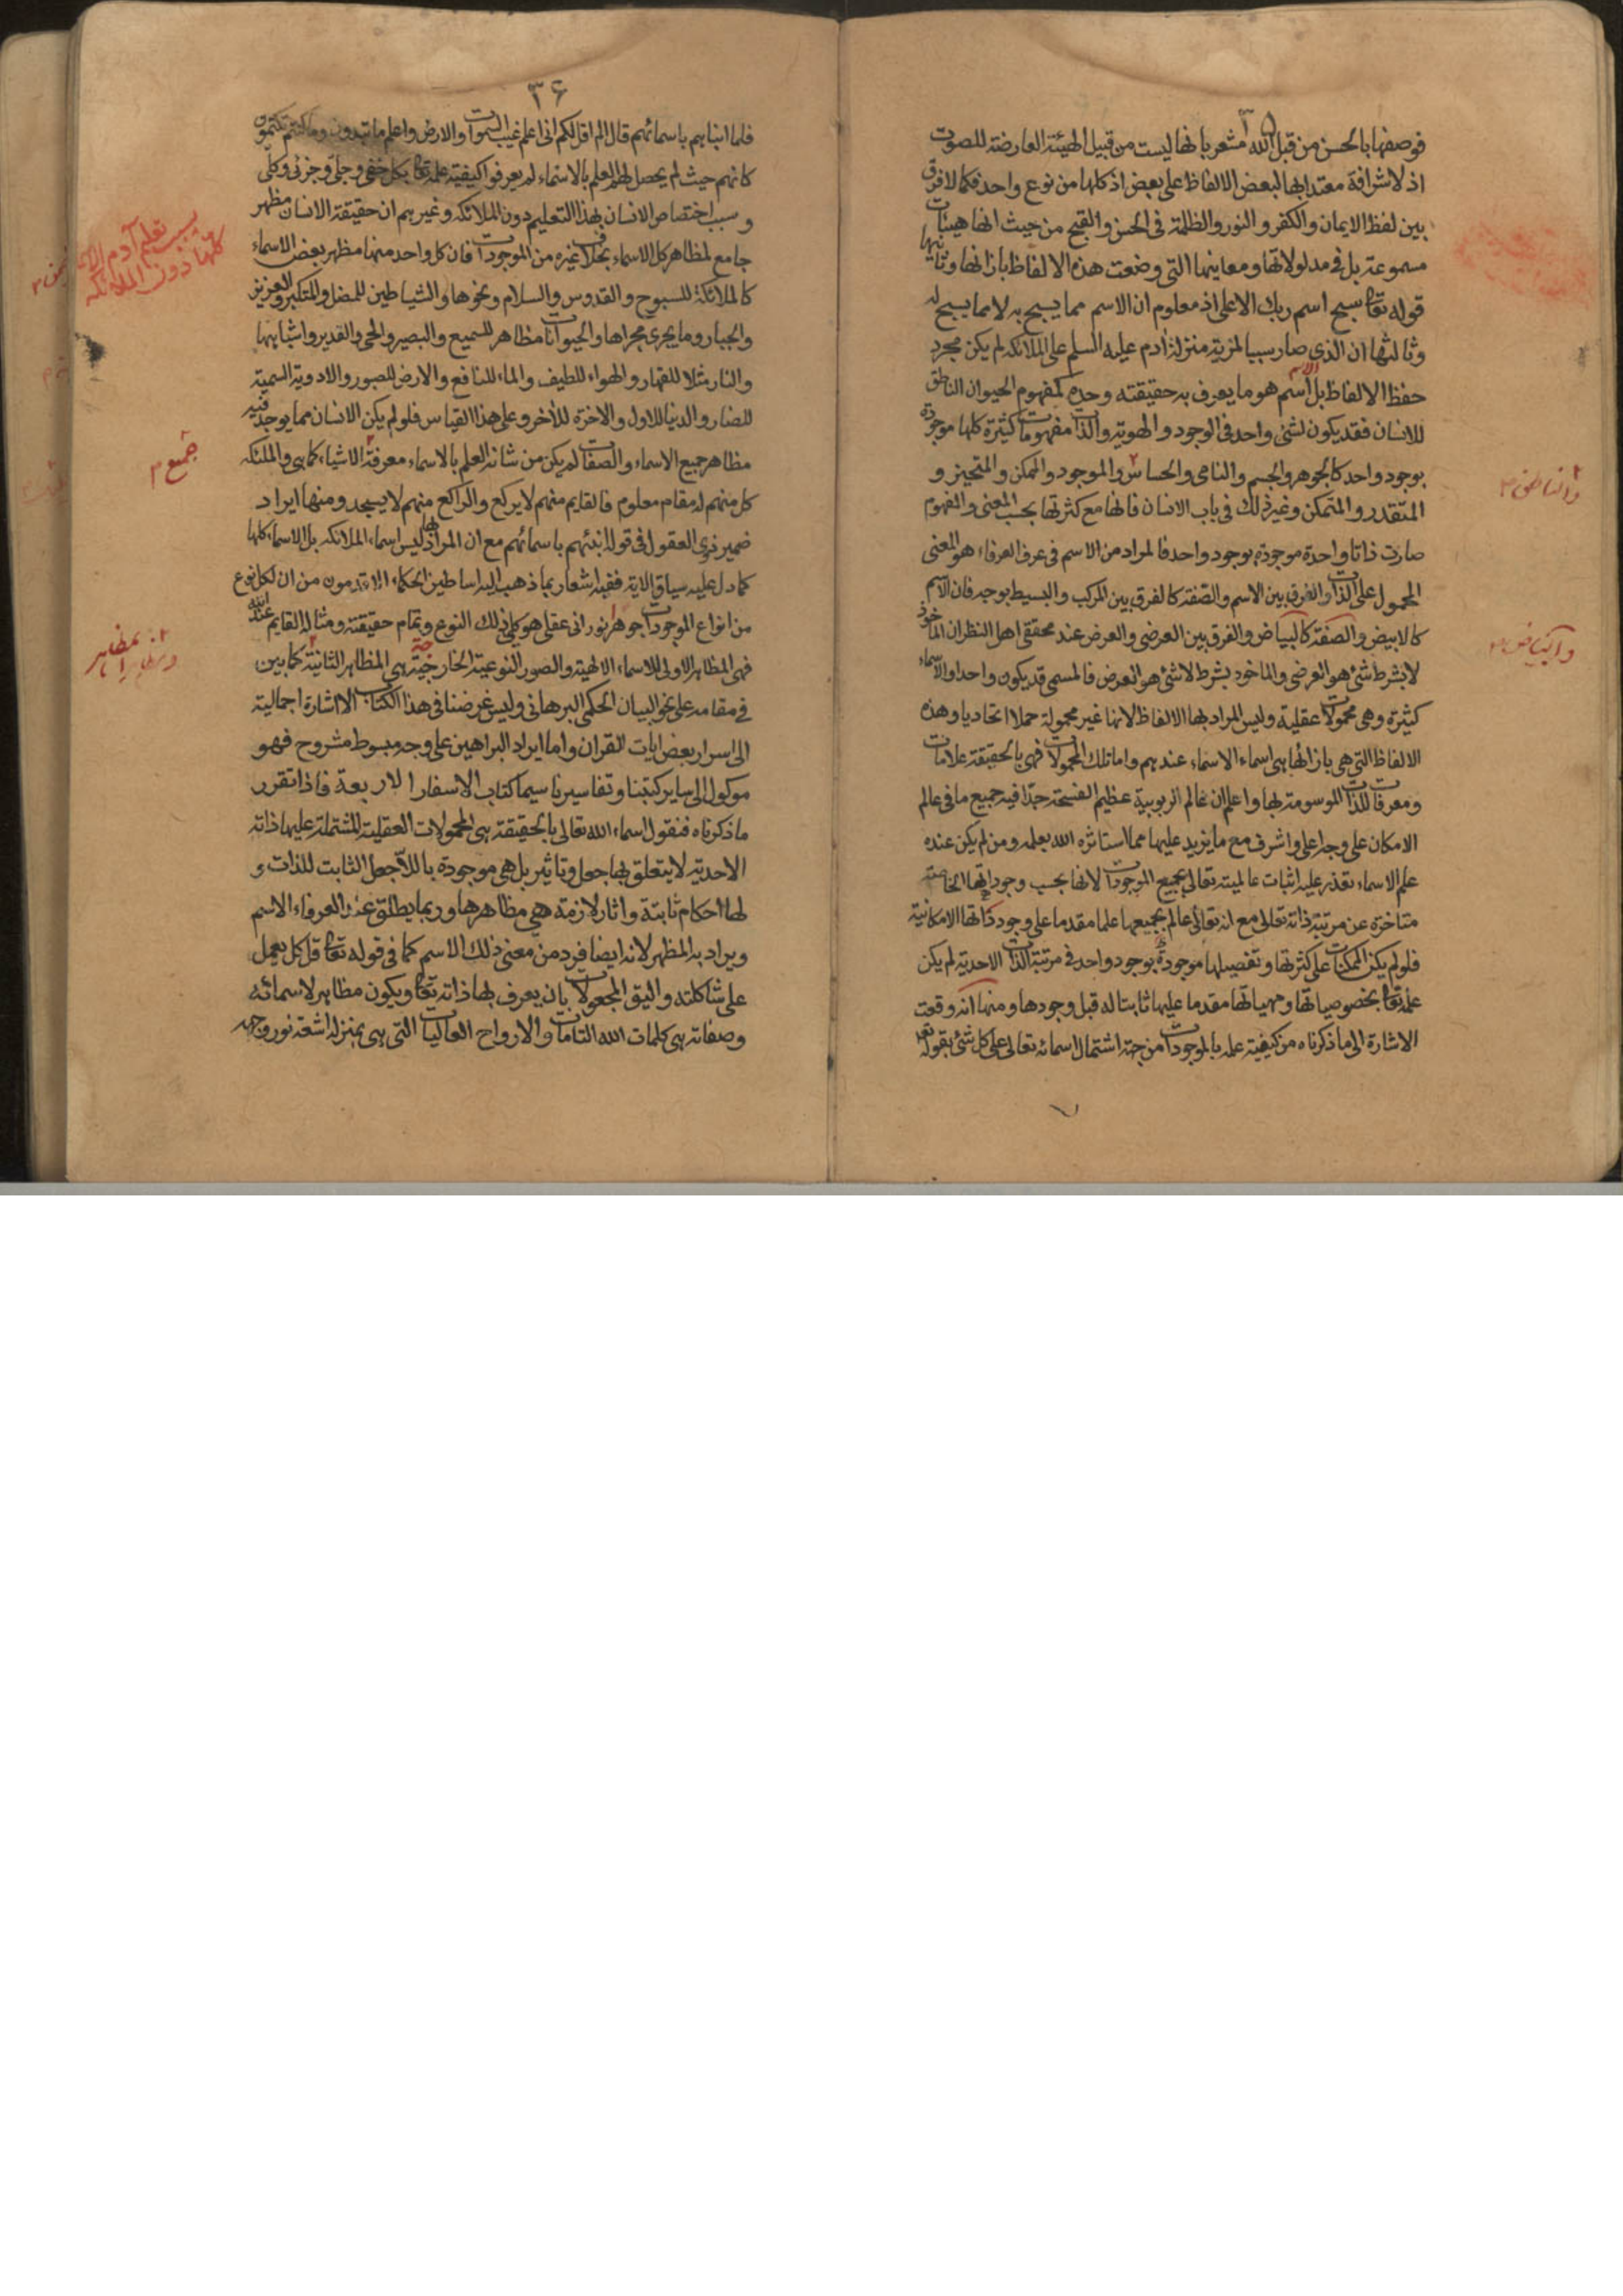 ٣٥
فوصفها بالحسن من قبل الله مشعر بانها ليست من قبيل الهيئة العارضة للصوت
اذ لا شرافة معتدا بها لبعض الالفاظ على بعض اذ كلها من نوع واحد فكما لا فرق
بين لفظ الايمان والكفر و النور والظلمة فى الحسن والقبح من حيث انها هيئات
مسموعة بل فى مدلولاتها ومعاينها التى وضعت هذه الالفاظ بازائها وثانيها
قوله تعا سبح اسم ربك الاعلى اذ معلوم ان الاسم مما يسبح به لا مما يسبح له
وثالثها ان الذى صار سببا لمزية منزلة ادم عليه السلم على الملائكة لم يكن مجرد
حفظ الالفاظ بل الاسم هو ما يعرف به حقيقته وحده كمفهوم الحيوان الناطق
للانسان فقد يكون لشئ واحد فى الوجود والهوية والذات مفهومات كثيرة كلها موجودة
بوجود واحد كالجوهر والجسم والنامى والحساس والموجود والممكن والمتحيز و
والناطق
المتقدر والمتمكن وغير ذلك فى باب الانسان فانها مع كثرتها بحسب المعنى والمفهوم
صارت ذاتا واحدة موجودة بوجود واحد فالمراد من الاسم فى عرف العرفاء هو المعنى
المحمول على الذات والفرق بين الاسم والصفة كالفرق بين المركب والبسيط بوجه فان الاسم
كالابيض والصفة كالبياض والفرق بين العرضى والعرض عند محققى اهل النظر ان الماخوذ
والبياض
لا بشرط شئ هو العرضى والماخوذ بشرط لا شئ هو العرض فالمسمى قد يكون واحدا والاسماء
كثيرة وهى محمولات عقلية وليس المراد بها الالفاظ لانها غير محمولة حملا اتحاديا وهذه
الالفاظ التى هى بازائها هى اسماء الاسماء عندهم واما تلك المحمولات فهى بالحقيقة علامات
ومعرفات للذات الموسومة بها واعلم ان عالم الربوبية عظيم الفسحة جدا فيه جميع ما فى عالم
الامكان على وجه اعلى واشرف مع ما يزيد عليها مما استاثره الله بعلمه ومن لم يكن عنده
علم الاسماء تعذر عليه اثبات عالميته تعالى بجميع الموجودات لانها بحسب وجوداتها الخاصة
متاخرة عن مرتبة ذاته تعالى مع انه تعالى عالم بجميعها علما مقدما على وجود ذاتها الامكانية
فلو لم يكن الممكنات على كثرتها وتفصيلها موجودة بوجود واحد فى مرتبة الذات الاحدية لم يكن
علمه تعا بخصوصياتها ومهياتها مقدما عليها ثابتا له قبل وجودها ومنها انه وقعت
الاشارة الى ما ذكرناه من كيفية علمه بالموجودات من جهة اشتمال اسمائه تعالى على كل شئ بقوله تعا
٣۶
فلما انباهم باسمائهم قال الم اقل لكم انى اعلم غيب السموات والارض واعلم ما تبدون وما كنتم تكتمون
كانهم حيث لم يحصل لهم العلم بالاسماء لم يعرفوا كيفية علمه تعا بكل خفى وجلى وجزئى وكلى
و سبب اختصاص الانسان بهذا التعليم دون الملائكة وغيرهم ان حقيقة الانسان مظهر
سبب تعلم آدم الاسماء
كلها دون الملائكة
جامع لمظاهر كل الاسماء بخلاف غيره من الموجودات فان كل واحد منها مظهر بعض الاسماء
كالملائكة للسبوح والقدوس والسلام ونحوها والشياطين للمضل والمتكبر والعزيز
والجبار وما يجرى مجراها والحيوانات مظاهر للسميع والبصير والحى والقدير واشباهها
والنار مثلا للقهار والهواء للطيف والماء للنافع والارض للصبور والادوية السمية
للضار والدنيا للاول والاخرة للآخر وعلى هذا القياس فلو لم يكن الانسان مما يوجد فيه
مظاهر جميع الاسماء والصفات لم يكن من شانه العلم بالاسماء معرفة الاشياء كما هى والملئكة
جميع
كل منهم له مقام معلوم فالقايم منهم لا يركع والراكع منهم لا يسجد ومنها ايراد
ضمير ذوى العقول فى قوله انبئهم باسمائهم مع ان المراد بها ليس اسماء الملائكة بل الاسماء كلها
كما دل عليه سياق الاية ففيه اشعار بما ذهب اليه اساطين الحكماء الاقدمون من ان لكل نوع
من انواع الموجودات جوهر نورانى عقلى هو كلى ذلك النوع وتمام حقيقته ومثاله القايم عند الله
فهى المظاهر الاولى للاسماء الالهية والصور النوعية الخارجية هى المظاهر الثانية كما بين
فى مقامه على نحو البيان الحكمى البرهانى وليس غرضنا فى هذا الكتاب الا اشارة اجمالية
الى اسرار بعض ايات القران واما ايراد البراهين على وجه مبسوط مشروح فهو
موكول الى ساير كتبنا وتفاسيرنا سيما كتاب الاسفار الاربعة فاذا تقرر
ما ذكرناه فنقول اسماء الله تعالى بالحقيقة هى المحمولات العقلية المشتملة عليها ذاته
الاحدية لا يتعلق بها جعل وتاثير بل هى موجودة باللاجعل الثابت للذات و
لها احكام ثابتة واثار لازمة هى مظاهرها وربما يطلق عند العرفاء الاسم
ويراد به المظهر لانه ايضا فرد من معنى ذلك الاسم كما فى قوله تعا قل كل يعمل
على شاكلته واليق المجعولات بان يعرف بها ذاته تعا ويكون مظاهر لاسمائه
وصفاته هى كلمات الله التامات والارواح العاليات التى هى بمنزلة اشعة نور وجهه